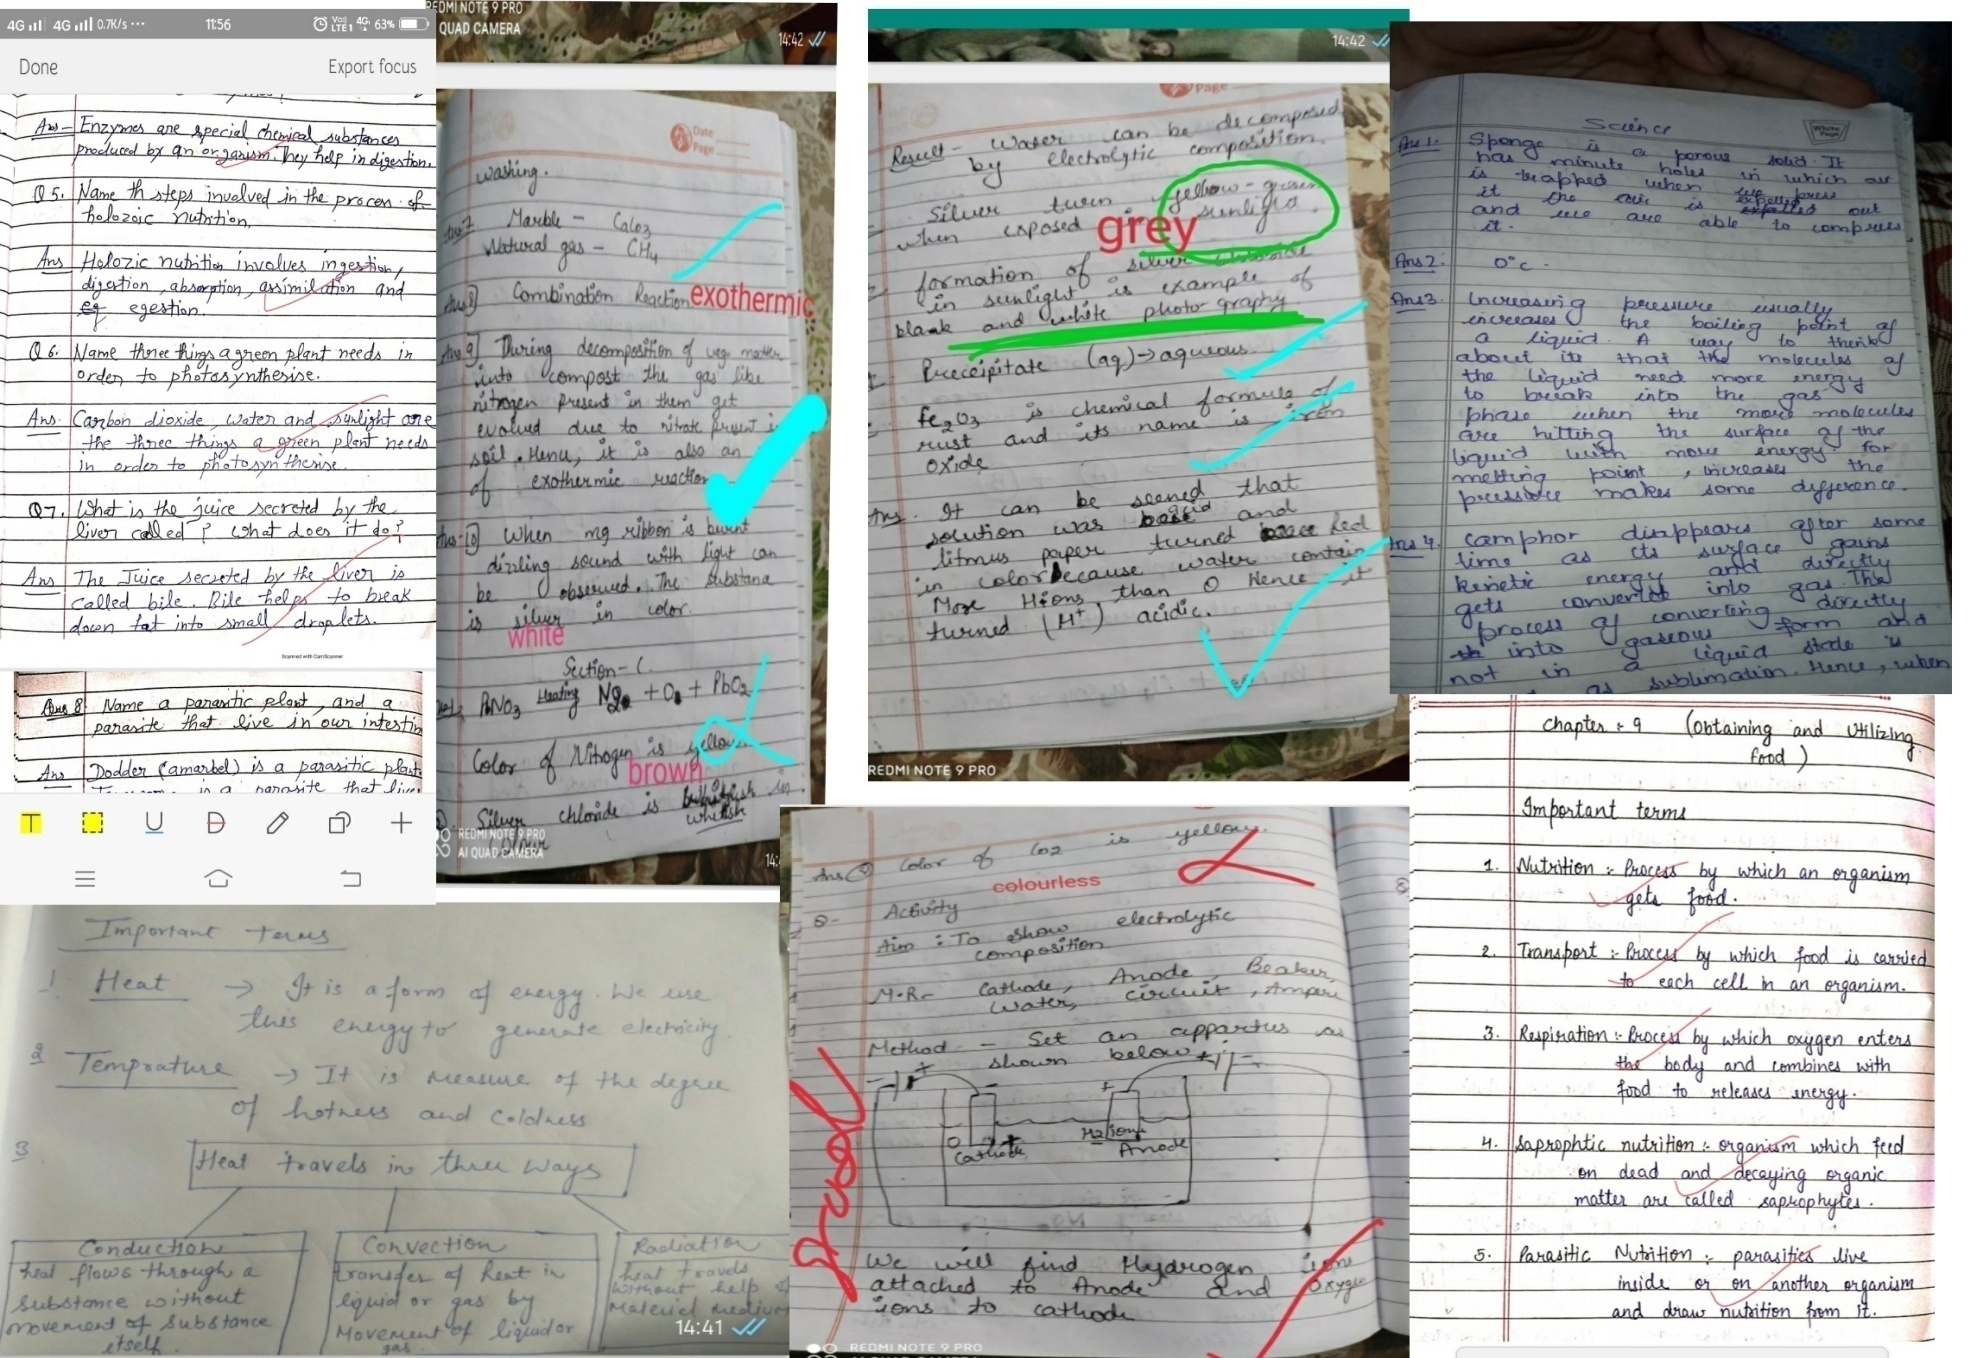 4G 4G 0.7K/s ··· 11:56 VoJ LTE1 4G 63%
Done Export focus
Ans - Enzymes are special chemical substances
produced by an organism. They help in digestion.
Q5. Name th steps involved in the process of
holozoic nutrition.
Ans Holozic nutrition involves ingestion,
digestion, absorption, assimilation and
egestion.
Q6. Name three things a green plant needs in
order to photosyntherise.
Ans. Carbon dioxide, water and sunlight are
the three things a green plant needs
in order to photosyntherise.
Q7. What is the juice secreted by the
liver called? What does it do?
Ans The Juice secreted by the liver is
called bile. Bile helps to break
down fat into small droplets.
Scanned with CamScanner
Ques 8 Name a parasitic plant, and a
parasite that live in our intestin
Ans Dodder (amarbel) is a parasitic plant.
is a parasite that live
T U D
REDMI NOTE 9 PRO
QUAD CAMERA
14:42
Date
Page
washing.
Ans 7 Marble - CaCo3
Natural gas - CH4
Ans 8] Combination Reaction exothermic
Ans 9] During decomposition of veg matter
into compost the gas like
nitrogen present in them get
evolved due to nitrate present in
soil. Hence, it is also an
of exothermic reaction
Ans-10] When mg ribbon is burnt
dizzling sound with light can
be observed. The substana
is silver in color.
white
Section-C
PbNO3 Heating + + PbO2
Color of Nitrogen is yellow
brown
Silver chloride is whitish in
REDMI NOTE 9 PRO
AI QUAD CAMERA
14:
14:42
Page
Result - Water can be decomposed
by electrolytic composition.
Silver turn yellow-green
when exposed sunlight
grey
formation of silver chloride
in sunlight is example of
blank and white photo graphy
Preceipitate (aq)→aqueous
Fe2O3 is chemical formula of
rust and its name is iron
oxide
Ans. It can be seened that
solution was acid and
litmus paper turned Red
in color because water contain
More Hions than O Hence it
turned (H+) acidic.
REDMI NOTE 9 PRO
Science
White Page
Ans 1. Sponge is a porous solid. It
has minute holes in which air
is trapped when we press
it the air is expelled out
and we are able to compress
it.
Ans2. 0°c.
Ans3. Increasing pressure usually
increases the boiling point of
a liquid. A way to think
about it is that the molecules of
the liquid need more energy
to break into the gas
phase when the more molecules
are hitting the surface of the
liquid with more energy. for
melting point, increases the
pressure makes some difference.
Ans 4. Camphor disappears after some
time as its surface gains
kinetic energy and directly
gets converted into gas. This
process of converting directly
into gaseous form and
not in a liquid state is
as sublimation. Hence, when
Important terms
1. Heat → It is a form of energy. We use
this energy to generate electricity.
2 Temprature → It is measure of the degree
of hotness and coldness
3 Heat travels in three ways
Conduction
heat flows through a
substance without
movement of substance
itself.
Convection
transfer of heat in
liquid or gas by
Movement of liquid or
gas.
Radiation
heat travels
without help of
Material medium
14:41
Ans color of Co2 is yellow.
colourless
Q- Activity
Aim : To show electrolytic
composition
M.R- Cathode, Anode, Beaker,
Water, circuit, Ampere
Method - Set an appartus as
shown below
- + + -
O Cathode + H2ions Anode
good
We will find Hydrogen ions
attached to Anode and Oxygen
ions to cathode
REDMI NOTE 9 PRO
AI QUAD CAMERA
Chapter : 9 (Obtaining and Utilizing
food)
Important terms
1. Nutrition :- Process by which an organism
gets food.
2. Transport :- Process by which food is carried
to each cell in an organism.
3. Respiration :- Process by which oxygen enters
the body and combines with
food to releases energy.
4. Saprophtic nutrition :- organism which feed
on dead and decaying organic
matter are called saprophytes.
5. Parasitic Nutrition :- parasities live
inside or on another organism
and draw nutrition from it.